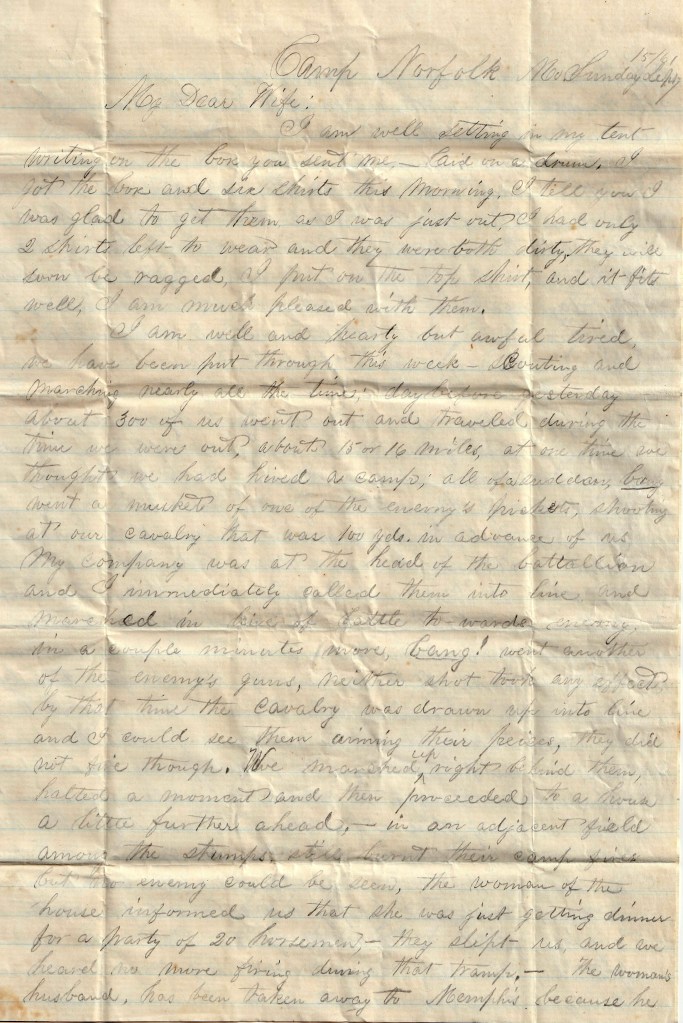 Camp Norfolk Mo Sunday Sept 15/61
My Dear Wife:
I am well setting in my tent
writing on the box you sent me, – laid on a drum. I
got the box and six shirts this morning. I tell you I
was glad to get them as I was just out, I had only
2 shirts left to wear and they were both dirty, they will
soon be ragged, I put on the top shirt, and it fits
well, I am much pleased with them.
I am well and hearty but awful tired,
we have been put through this week – Scouting and
marching nearly all the time; day before yesterday
about 300 of us went out and traveled during the
time we were out, about 15 or 16 miles, at one time we
thought we had hived a camp; all of a sudden, bang
went a musket of one of the enemy's pickets, shooting
at our cavalry that was 100 yds. in advance of us
My company was at the head of the battallion
and I immediately called them into line and
marched in line of battle to-wards enemy,
in a couple minutes more, bang! went another
of the enemy's guns, neither shot took any effect,
by that time the cavalry was drawn up into line
and I could see them aiming their peices, they did
not fire though. We marched up right behind them,
halted a moment and then proceeded to a house
a little further ahead, – in an adjacent field
among the stumps still burnt their camp fires
but no enemy could be seen, the woman of the
house informed us that she was just getting dinner
for a party of 20 horsemen, – they slipt us, and we
heard no more firing during that tramp. – The woman's
husband, has been taken away to Memphis because he